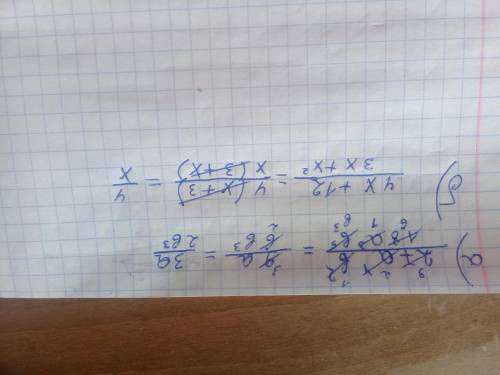 а) 27a²b² / 18ab⁵ = 9a / 6b³ = 3a / 2b³
б) 4x+12 / 3x+x² = 4(x+3) / x(3+x) = 4 / x